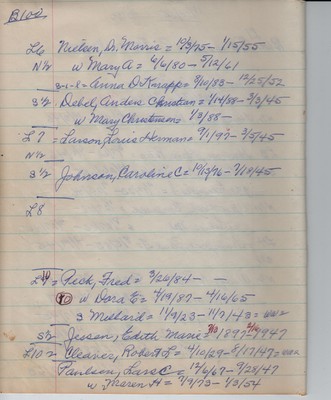 B100
L6 Nielsen, Dr. Morris = 10/3/75 - 1/15/55
N½ w Mary A = 6/6/80 - 5/12/61
3-i-l = Anna D. Knapp = 9/10/83 - 12/25/52
S½ Debel, Anders Christian = 1/14/58 - 3/3/45
w Mary Christensen = 1/3/88 -
L7 = Larson, Louis Herman = 9/1/97 - 3/5/45
N½
S½ Johnson, Caroline C = 10/15/76 - 7/10/45
L8
L9 = Peck, Fred = 3/26/84 - -
10 w Dora E = 4/19/87 - 4/16/65
s Millard = 11/9/23 - 11/7/43 = WW2
S½ Jessen, Edith Marie = 7/10 1897 - 2/16 1947
L10 = Cleaves, Robert L = 4/10/29 - 5/17/47 =
Paulsen, Lars C = 12/6/67 - 9/28/47
w Maren H = 7/9/73 - 1/3/54